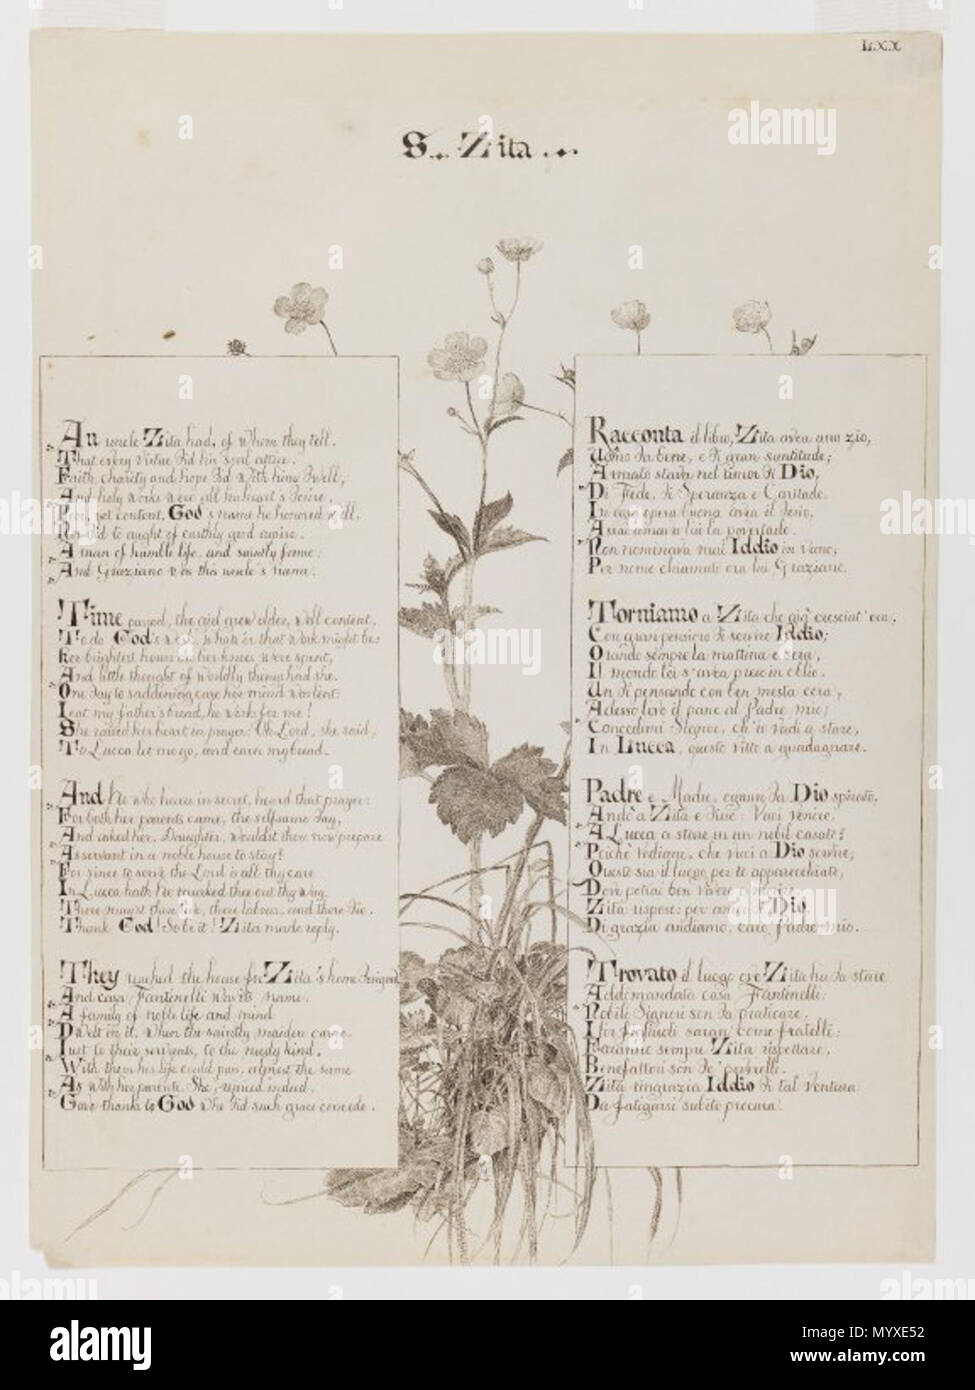 LXX
S. Zita
An uncle Zita had, of whom they tell,
That every virtue did his soul attire.
Faith, charity and hope did with him dwell,
And holy works were all his heart's desire,
Yet not content, God's name he honored well,
Nor did to aught of earthly good aspire.
A man of humble life, and saintly fame,
And Graziano was this uncle's name.
Time passed, the girl grew older, well content,
To do God's will, what e'er that work might be:
her brightest hours on her knees were spent,
And little thought of worldly things had she.
One day to saddening care her mind was lent:
I eat my father's bread, he works for me!
She raised her heart in prayer: Oh Lord, she said,
To Lucca let me go, and earn my bread.
And He who hears in secret, heard that prayer:
For both her parents came, the selfsame day,
And asked her, Daughter, wouldst thou now prepare
As servant in a noble house to stay?
For since to serve the Lord is all thy care
In Lucca hath he marked thee out thy way.
There mayst thou live, there labour, and there die.
Thank God! So be it! Zita made reply.
They reached the house for Zita's home designed
And casa Fantinelli was its name.
A family of noble life and mind
Dwelt in it, when the saintly maiden came.
Just to their servants, to the needy kind,
With them her life could pass, almost the same
As with her parents. She, rejoiced indeed,
Gave thanks to God who did such grace concede.
Racconta il libro, Zita avea uno zio,
Uomo da bene, e di gran santitude;
Armato stava nel timor di Dio,
Di Fede, di Speranza e Caritade.
In ogni opera buona avea il desio,
Assai amava a lui la povertade.
Non nominava mai Iddio in vano;
Per nome chiamato era lui Graziano.
Torniamo a Zita che già cresciut'era,
Con gran pensiero di servire Iddio;
Orando sempre la mattina e sera,
Il mondo lei s'avea preso in oblio.
Un dì pensando con ben mesta cera,
Adesso levo il pane al Padre mio;
Concedimi Signor, ch'io vadi a stare,
In Lucca, questo vitto a guadagnare.
Padre e Madre, ognun da Dio spirato,
Andò a Zita e disse: Vuoi venire
A Lucca a stare in un nobil casato?
Poichè vediamo, che vuoi a Dio servire,
Questo sia il luogo per te apparecchiato,
Dove potrai ben vivere e morire.
Zita rispose: per amor di Dio
Di grazia andiamo, caro Padre mio.
Trovato il luogo ov'è Zita ha da stare
Addomandata casa Fantinelli:
Nobili Signori son da praticare,
I lor famigli saran come fratelli:
Faranno sempre Zita rispettare,
Benefattori son de' poverelli:
Zita ringrazia Iddio di tal ventura
Da faticarsi subito procura.
alamy
Image ID: MYXE52
www.alamy.com